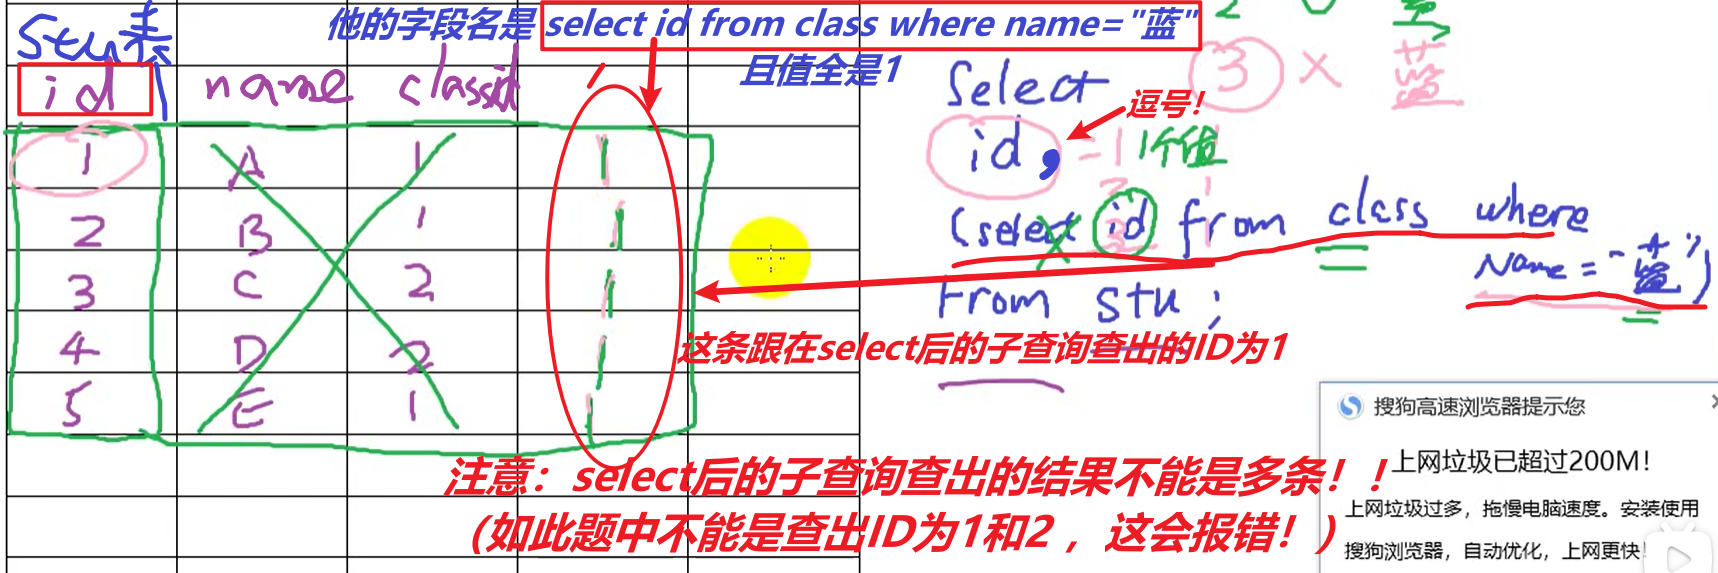 stu表
他的字段名是 select id from class where name="蓝"
且值全是1
id name classid
1 A 1 1
2 B 1 1
3 C 2 1
4 D 2 1
5 E 1 1
2
3 × 蓝
Select
逗号！
id， =1 1个值
(select id from class where
Name="蓝")
From stu;
这条跟在select后的子查询查出的ID为1
注意：select后的子查询查出的结果不能是多条！！
（如此题中不能是查出ID为1和2，这会报错！）
搜狗高速浏览器提示您
上网垃圾已超过200M！
上网垃圾过多，拖慢电脑速度。安装使用
搜狗浏览器，自动优化，上网更快！